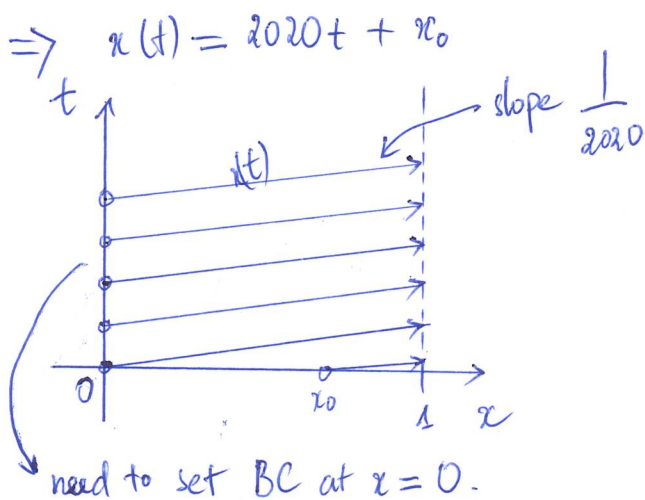 ⇒ x(t) = 2020t + x₀
t
slope 1/2020
x(t)
0
x₀
1
x
need to set BC at x = 0.